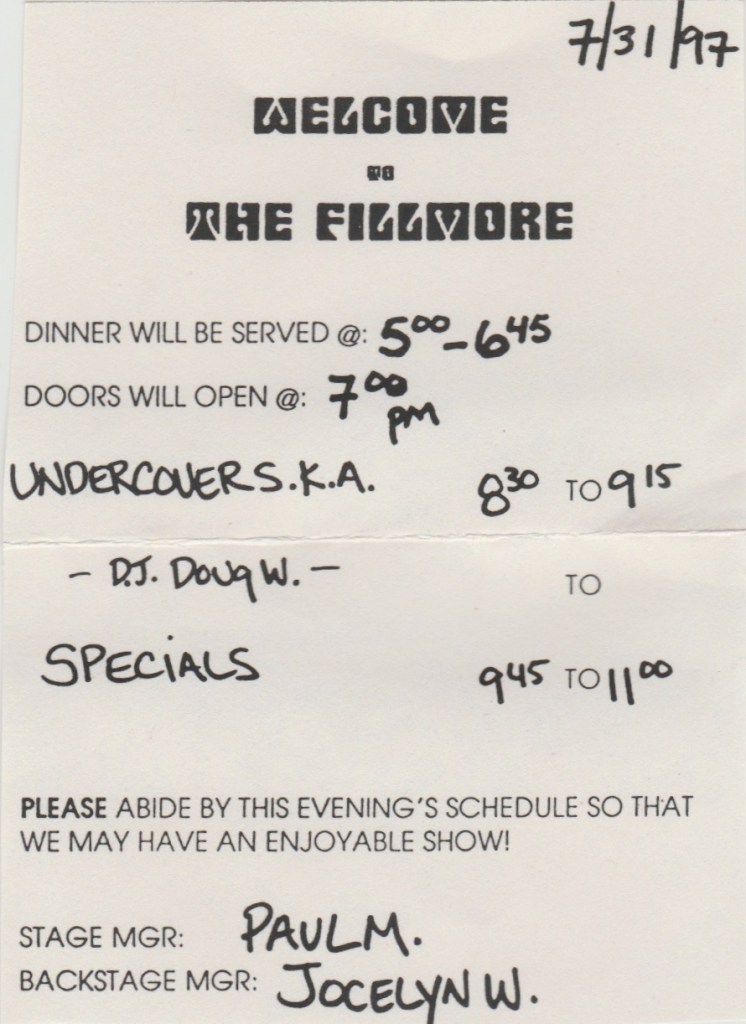 7/31/97
WELCOME
TO
THE FILLMORE
DINNER WILL BE SERVED @: 5⁰⁰-6⁴⁵
DOORS WILL OPEN @: 7⁰⁰ pm
UNDERCOVER S.K.A. 8³⁰ TO 9¹⁵
- D.J. Doug W. - TO
SPECIALS 9⁴⁵ TO 11⁰⁰
PLEASE ABIDE BY THIS EVENING'S SCHEDULE SO THAT
WE MAY HAVE AN ENJOYABLE SHOW!
STAGE MGR: PAUL M.
BACKSTAGE MGR: JOCELYN W.